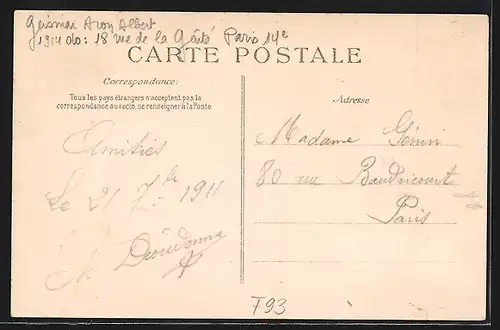 Aron Albert
1914 do: 18 rue de la Gaîté Paris 14e
CARTE POSTALE
Correspondance:
Tous les pays étrangers n'acceptent pas la
correspondance au recto, se renseigner à la Poste
Adresse
Amitiés
Le 21 7bre 1911
Dieudonné
Madame Génin
80 rue Baudricourt
Paris
T93